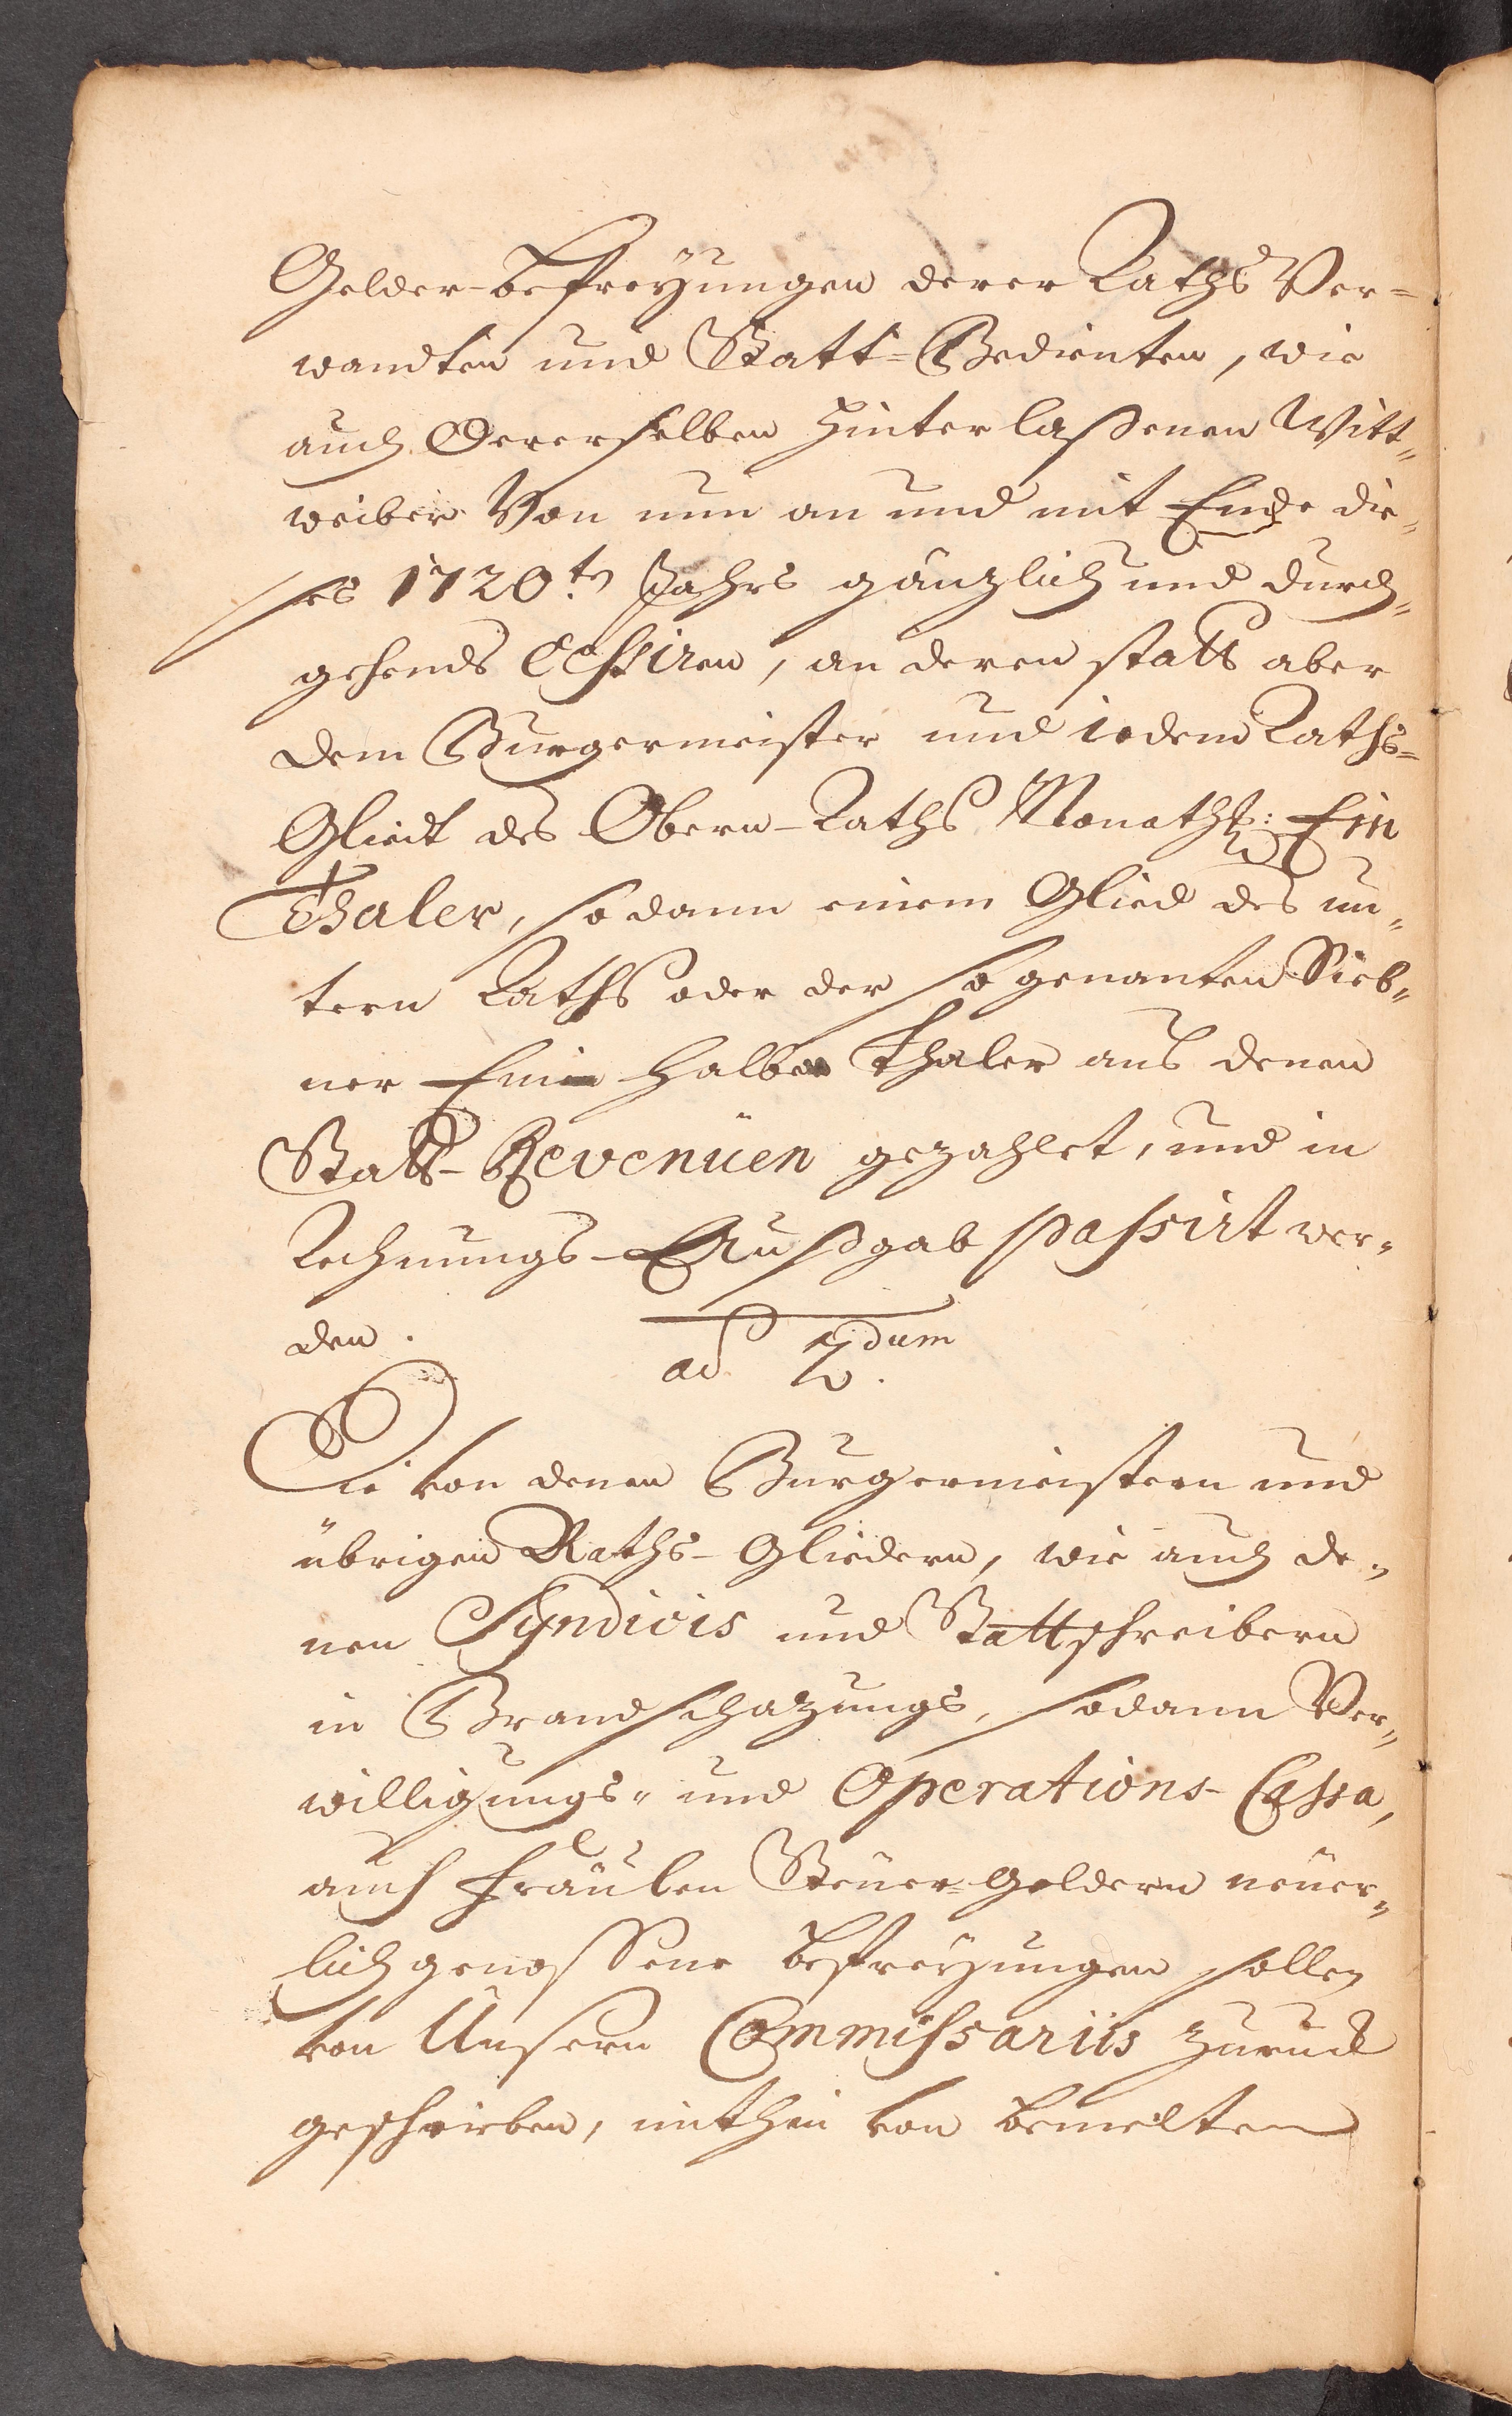 Gelder-Befreyungen derer Raths Ver=
wandten und Statt=Bedienten, wie
auch Dererselben Hinterlaßenen Witt„
weiber Von nun an und mit Ende die„
ses 1720.ten Jahrs gänzlich und durch„
gehends Cessiren, an deren statt aber
dem Burgermeister und iedem Raths=
Gliedt des Obern-Raths Monathl: Ein
Thaler, sodann einem Glied des un„
tern Raths oder der so genanten Sieb„
ner Ein halber Thaler aus denen
Statt-Revenüen gezahlet, und in
Rechnungs-Außgab passirt wer„
den.
ad 2dum.
Die von denen Burgermeistern und
übrigen Raths-Gliedern, wie auch de„
nen Syndicis und Stattschreibern
in Brandschazungs, sodann Ver„
willigungs„ und Operations-Cassa,
auch Fräulen Steuer=Geldern neuer„
lich genossene Befreyungen sollen
von Unsern Commissariis zuruck
geschrieben, mithin von bemelten